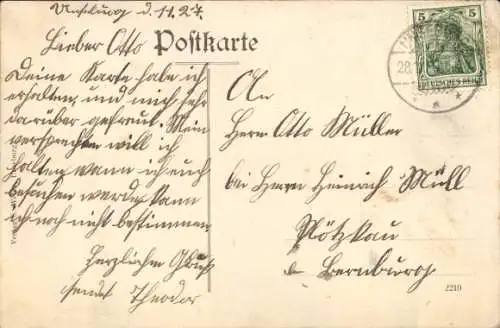 Unseburg d. 11. 27.
Lieber Otto
Postkarte
Deine Karte habe ich
erhalten, und mich sehr
darüber gefreut. Mein
versprechen will ich
halten wann ich euch
besuchen werde kann
ich noch nicht bestimmen
Herzlichen Gruß
sendet Theodor
An
Herrn Otto Müller
bei Herrn Heinrich Müll
Plötzkau
Bernburg
5 5
DEUTSCHES REICH
28.
2219